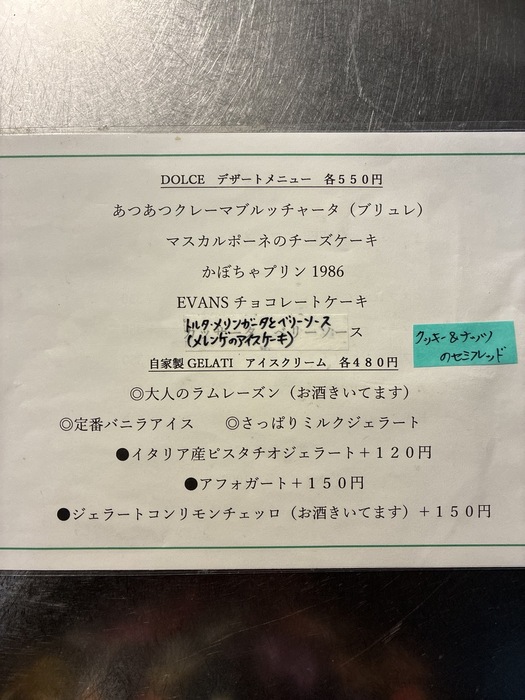 DOLCE デザートメニュー 各５５０円
あつあつクレーマブルッチャータ（ブリュレ）
マスカルポーネのチーズケーキ
かぼちゃプリン 1986
EVANS チョコレートケーキ
トルタ・メリンガータとベリーソース
(メレンゲのアイスケーキ)
ース
クッキー&ナッツ
のセミフレッド
自家製 GELATI アイスクリーム 各４８０円
◎大人のラムレーズン（お酒きいてます）
◎定番バニラアイス ◎さっぱりミルクジェラート
●イタリア産ピスタチオジェラート＋１２０円
●アフォガート＋１５０円
●ジェラートコンリモンチェッロ（お酒きいてます）＋１５０円